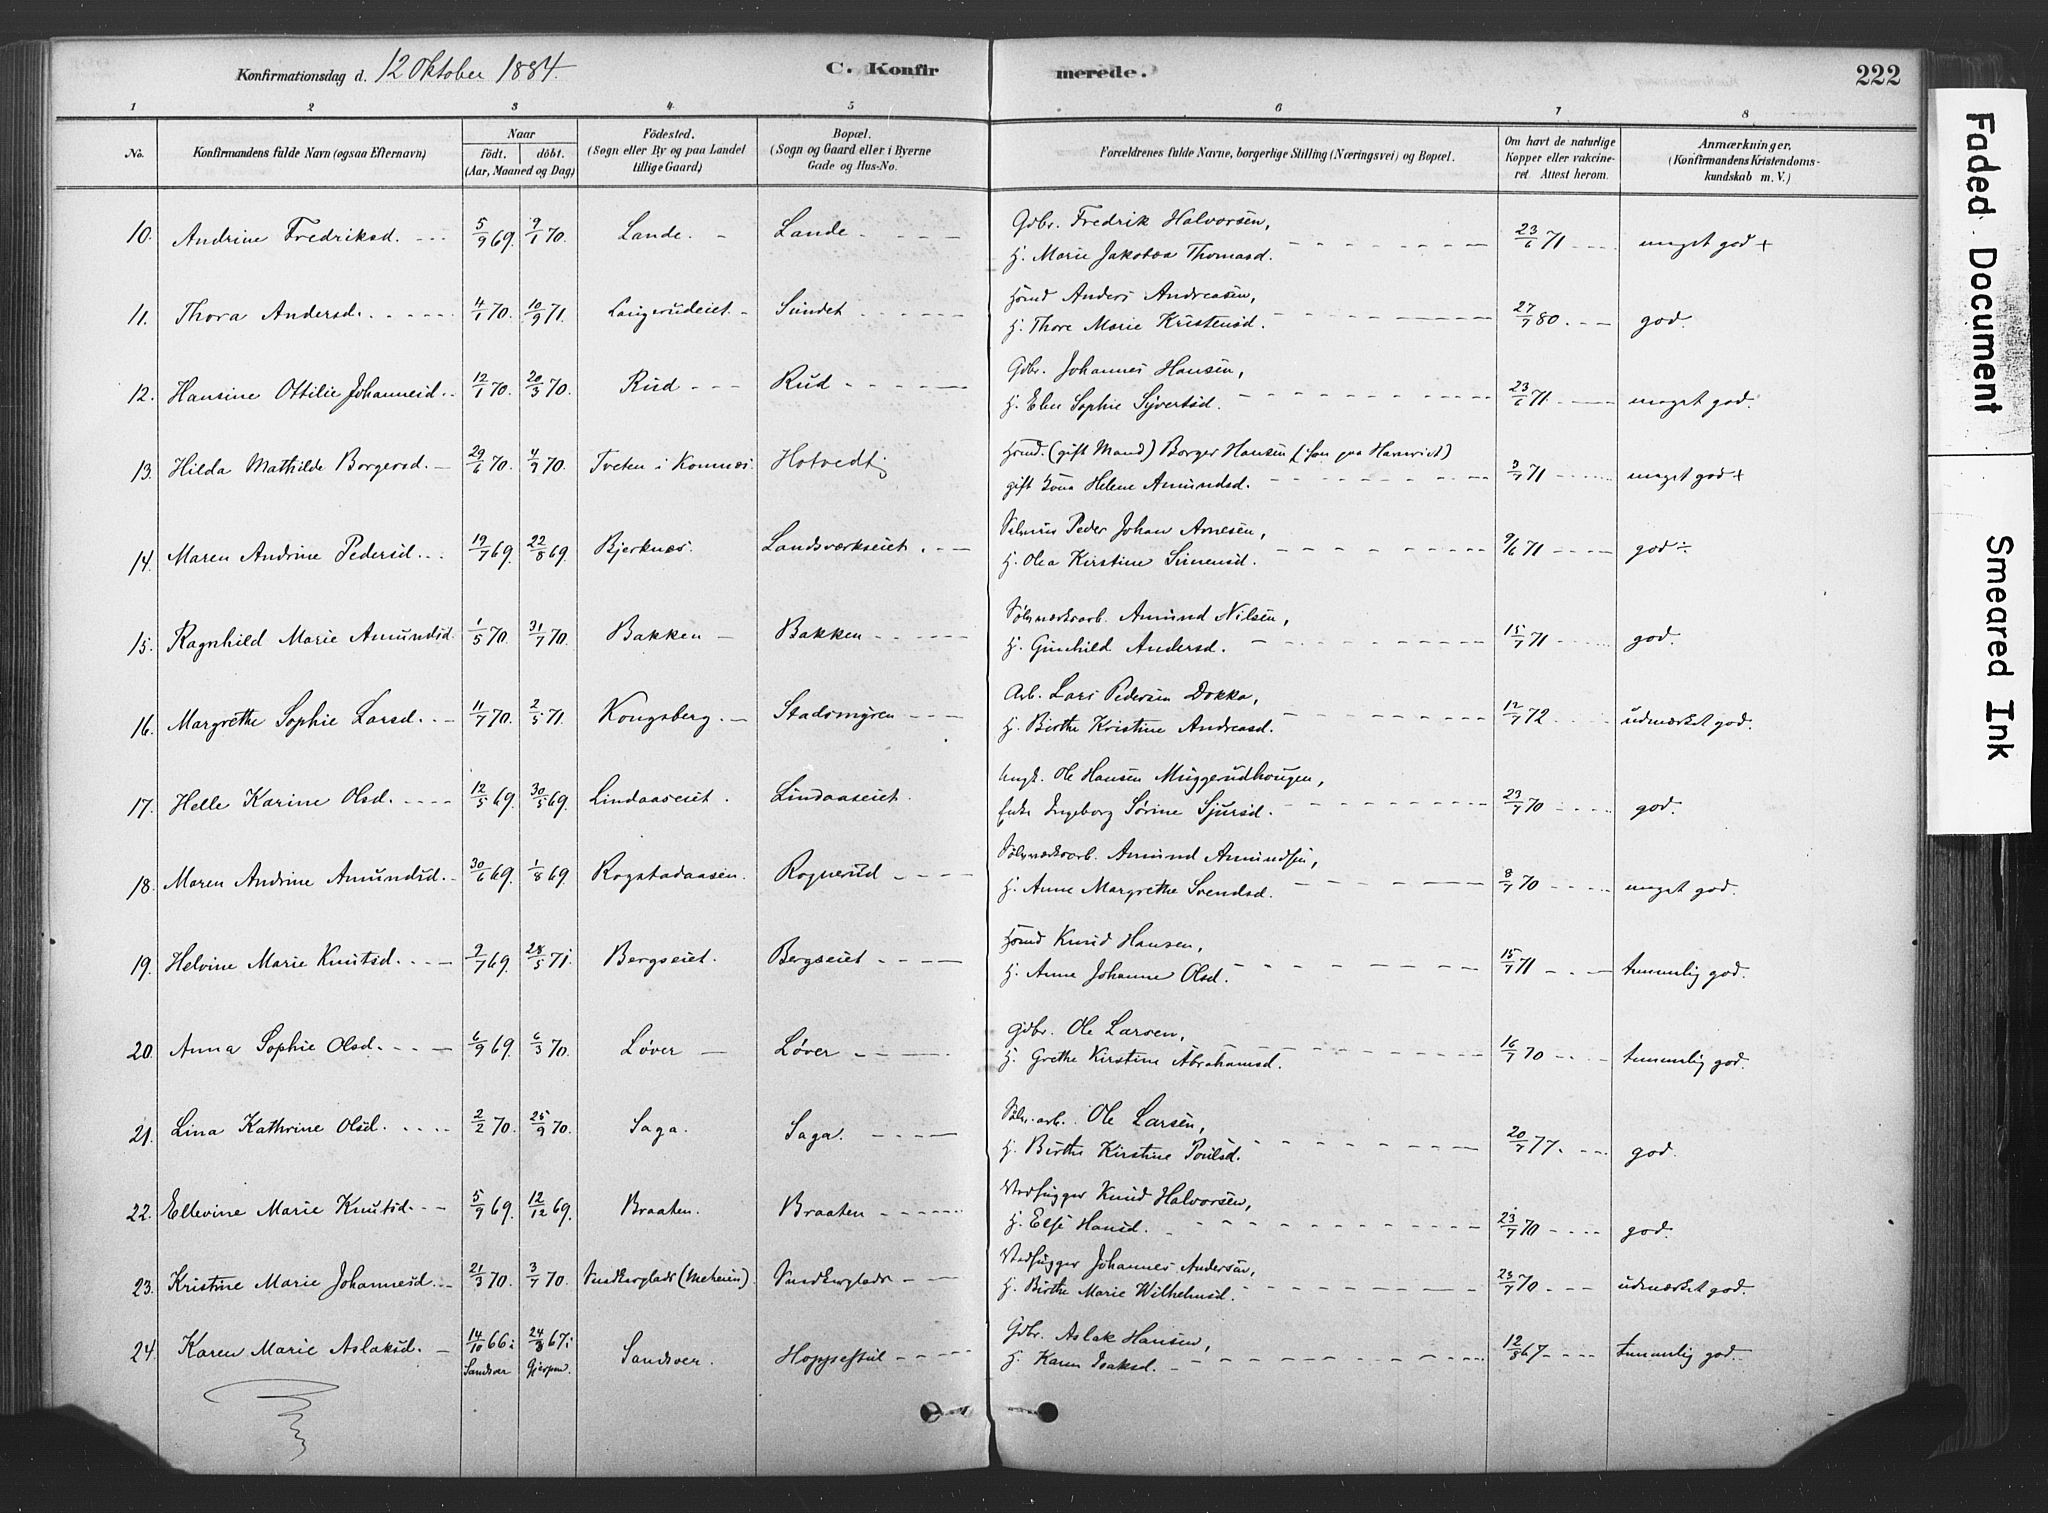 Konfirmationsdag d. 12 Oktober 1884. C. Konfirmerede. 222
1 2 3 4 5 6 7 8
No. Konfirmandens fulde Navn (ogsaa Efternavn) Naar födt. döbt. (Aar, Maaned og Dag) Födested. (Sogn eller By og paa Landet tillige Gaard) Bopæl. (Sogn og Gaard eller i Byerne Gade og Hus-No. Forældrenes fulde Navne, borgerlige Stilling (Næringsvei) og Bopæl. Om havt de naturlige Kopper eller vakcineret. Attest herom. Anmærkninger, (Konfirmandens Kristendomskundskab m. V.)
10. Andrine Fredriksd. 5/9 69. 9/1 70. Lande. Lande Gdbr. Fredrik Halvorsen, 23/6 71 meget god +
H. Marie Jakobea Thomasd.
11. Thora Andersd. 4/1 70. 10/9 71. Langerudeiet Sundet Hsmd Anders Andreasen, 27/7 80. god.
H. Thore Marie Kristensd.
12. Hansine Ottilie Johannesd. 12/1 70. 20/3 70. Rud Rud Gdbr. Johannes Hansen, 23/6 71. meget god.
H. Elen Sophie Syvertsd.
13. Hilda Mathilde Borgersd. 29/6 70. 4/9 70. Tveten i Komnæs. Hotvedt Hsmd. (gift Mand) Borger Hansen
gift Kona Helene Amundsd. 3/7 71 meget god +
14. Maren Andrine Pedersd. 19/7 69. 22/8 69. Bjerknæs. Landsværkseiet Peder Johan Arnesen, 9/6 71 god ÷
H. Olea Kirstine Simensd.
15. Ragnhild Marie Amundsd. 1/5 70. 31/7 70. Bakken Bakken Sølvværksarb. Amund Nilsen, 15/7 71 god.
H. Gunhild Andersd.
16. Margrethe Sophie Larsd. 11/7 70. 2/5 71. Kongsberg. Stadsmyren Arb. Lars Pedersen Dokka, 12/7 72 udmærket god.
H. Birthe Kristine Andreasd.
17. Helle Karine Olsd. 12/5 69. 30/5 69. Lindaaseiet. Lindaaseiet. Ungk. Ole Hansen Muggerudhougen, 23/7 70 god.
Enke Ingeborg Sørine Sjursd.
18. Maren Andrine Amundsd. 30/6 69. 1/8 69. Rogstadaasen. Rognerud Sølvværksarb. Amund Amundsen, 8/7 70 meget god.
H. Anne Margrethe Svendsd.
19. Helvine Marie Knutsd. 2/7 69. 28/5 71. Bergseiet. Bergseiet Hsmd Knud Hansen, 15/7 71 temmelig god.
H. Anne Johanne Olsd.
20. Anna Sophie Olsd. 6/9 69. 6/3 70. Løver Løver Gdbr. Ole Larsen, 16/7 70 temmelig god.
H. Grethe Kirstine Abrahamsd.
21. Lina Kathrine Olsd. 2/2 70. 25/9 70. Saga. Saga. Sølv.arb. Ole Larsen, 20/7 77. god.
H. Birthe Kirstine Poulsd.
22. Ellevine Marie Knutsd. 5/9 69. 12/12 69. Braaten. Braaten Vedhugger Knud Halvorsen, 23/7 70 god.
H. Else Hansd.
23. Kristine Marie Johannesd. 21/3 70. 3/7 70. Vedhugger Johannes Andersen, 23/7 70 udmærket god.
H. Birthe Marie Wilhelmsd.
24. Karen Marie Aslaksd. 14/10 66 i Sandsver 24/3 67 i Gjerpen Sandsver. Hoppestul Gdbr. Aslak Hansen, 12/8 67 temmelig god.
H. Karen Isaksd.
Faded Document
Smeared Ink